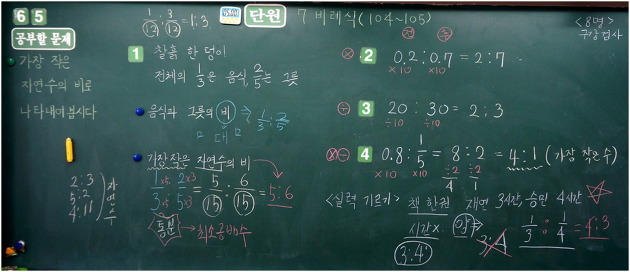 6 5
1/12 : 3/12 = 1 : 3
단원 7 비례식 (104~105)
<8명>
구강검사
공부할 문제
가장 작은
자연수의 비로
나타내어 봅시다
2 : 3
5 : 2
4 : 11
자연수
1 찰흙 한 덩이
전체의 1/3은 음식, 2/5는 그릇
음식과 그릇의 비 → 1/3 : 2/5
대
가장 작은 자연수의 비
1×5/3×5 : 2×3/5×3 = 5/15 : 6/15 = 5 : 6
통분 → 최소공배수
2 0.2 : 0.7 = 2 : 7
×10 ×10
3 20 : 30 = 2 : 3
÷10 ÷10
4 0.8 : 1/5 = 8 : 2 = 4 : 1 (가장 작은 수)
×10 ×10 ÷2 ÷2
4 1
<실력 기르기> 책 한권 재연 3시간, 승민 4시간
시간× 양
3 : 4
3:4
1/3 : 1/4 = 4 : 3